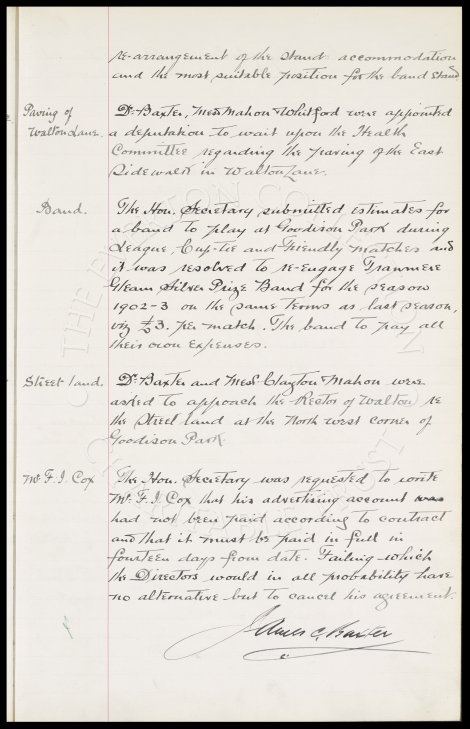 re-arrangement of the stand accommodation
and the most suitable position for the band stand
Paving of
Walton Lane.
Dr. Baxter, Mess Mahon & Whitford were appointed
a deputation to wait upon the Health
Committee regarding the paving of the East
Sidewalk in Walton Lane.
Band.
The Hon. Secretary submitted estimates for
a band to play at Goodison Park during
League, Cup-tie and Friendly matches and
it was resolved to re-engage Tranmere
Gleam Silver Prize Band for the season
1902-3 on the same terms as last season,
viz £3. per match. The band to pay all
their own expenses.
Street land.
Dr. Baxter and Mess. Clayton & Mahon were
asked to approach the Rector of Walton re
the Street land at the North west corner of
Goodison Park.
Mr F. J. Cox
The Hon. Secretary was requested to write
Mr. F. J. Cox that his advertising account was
had not been paid according to contract
and that it must be paid in full in
fourteen days from date. Failing which
the Directors would in all probability have
no alternative but to cancel his agreement.
James C. Baxter